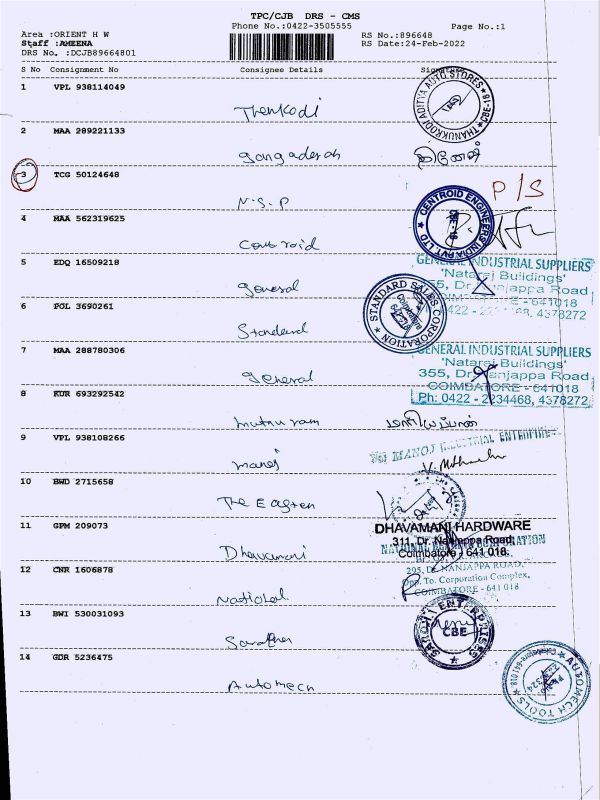 TPC/CJB DRS - CMS
Phone No.:0422-3505555
Page No.:1
Area :ORIENT H W
RS No.:896648
Staff :AMEENA
RS Date:24-Feb-2022
DRS No. :DCJB89664801
S No Consignment No Consignee Details Signature
1 VPL 938114049
Thenkodi
THANUKKODI ADITYA AUTO STORES * CBE-18 *
2 MAA 289221133
gangadaran
3 TCG 50124648
N.S.P
P/S
4 MAA 562319625
Centroid
CENTROID ENGINEERS INDIA PVT. LTD
CBE-18
5 EDQ 16509218
general
GENERAL INDUSTRIAL SUPPLIERS
'Nataraj Buildings'
355, Dr. Nanjappa Road
COIMBATORE - 641018
4378272
6 POL 3690261
Standard
STANDARD SALES CORPORATION
Coimbatore
7 MAA 288780306
general
GENERAL INDUSTRIAL SUPPLIERS
'Nataraj Buildings'
355, Dr. Nanjappa Road
COIMBATORE - 641018
Ph: 0422 - 2234468, 4378272
8 KUR 693292542
muthuram
9 VPL 938108266
manoj
MANOJ INDUSTRIAL ENTERPRISE
10 BWD 2715658
The Eastern
11 GPM 209073
Dhavamani
DHAVAMANI HARDWARE
311, Dr. Nanjappa Road,
Coimbatore - 641 018.
12 CNR 1606878
National
295, Dr. NANJAPPA ROAD,
Opp. To. Corporation Complex,
COIMBATORE - 641 018
13 BWI 530031093
CBE
14 GDR 5236475
Automech
AUTOMECH TOOLS
Coimbatore-641 018